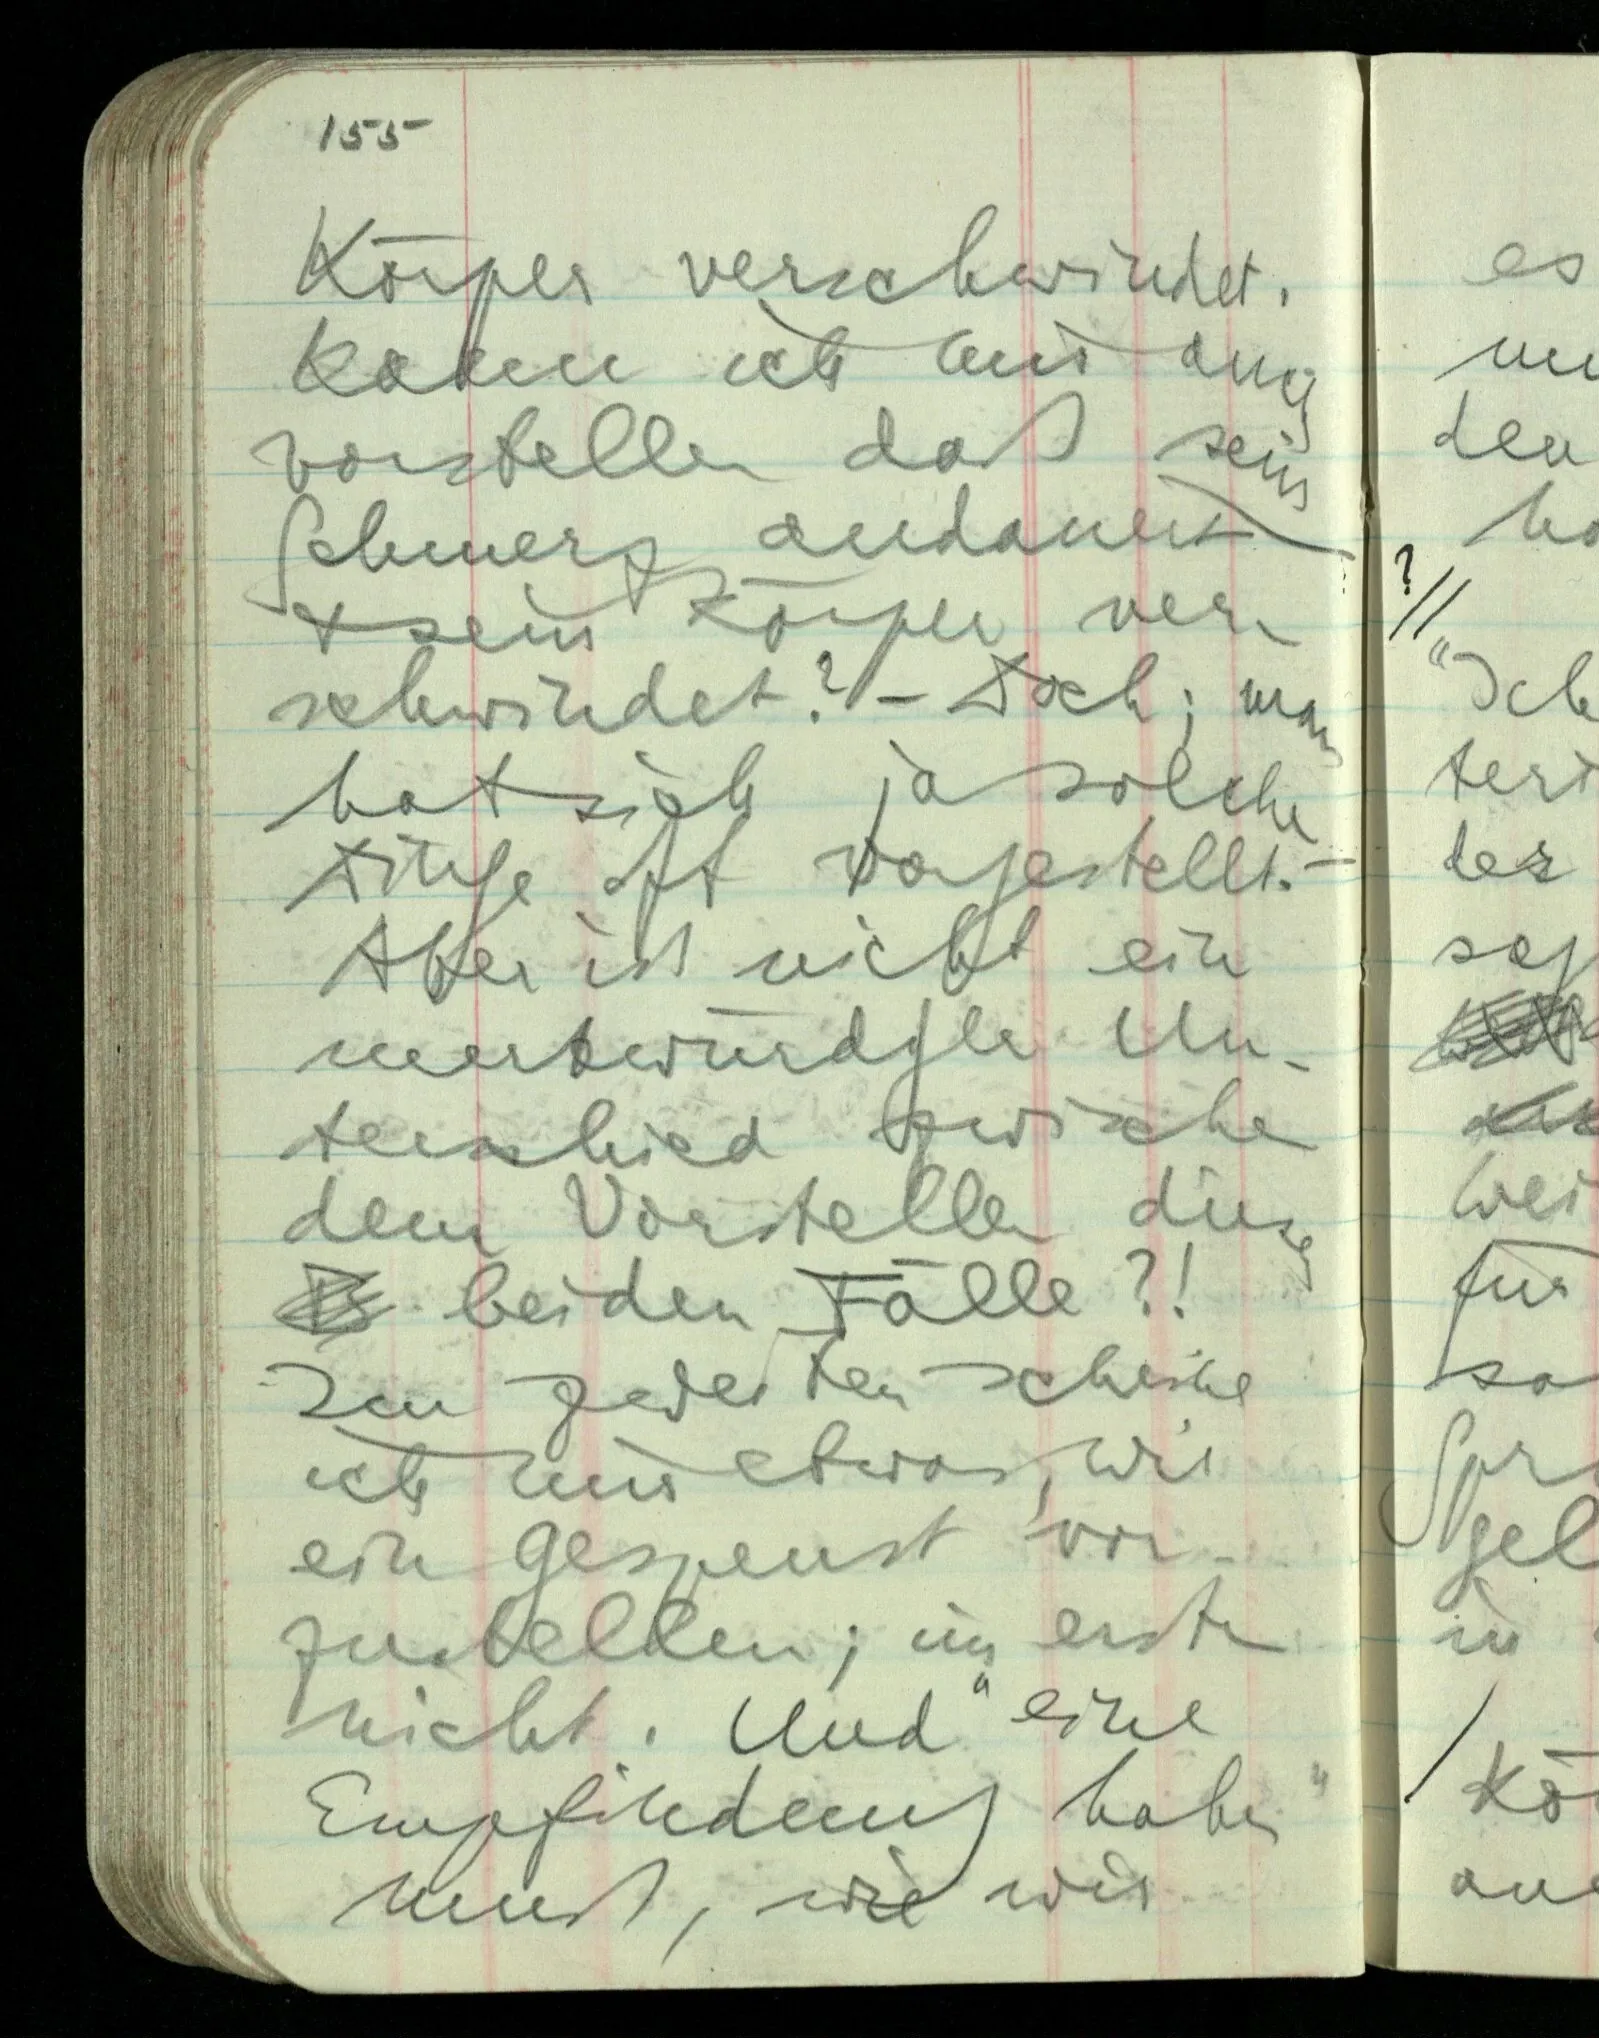 155
Körper verschwindet.
Kann ich mir aug
vorstellen daß sein
Schmerz andauert
+ sein Körper ver-
schwindet? – Doch; man
hat sich ja solche
Dinge oft vorgestellt. –
Aber ist nicht ein
merkwürdiger Un-
terschied zwischen
dem Vorstellen dieser
beiden Fälle?!
Im zweiten scheine
ich mir etwas, wie
ein Gespenst vor-
zustellen; im ersten
nicht. Und "eine
Empfindung haben"
muß, wie wir
es
den
?//
"Ich
teri
der
für
so
Spr
gel
in
/
Kö